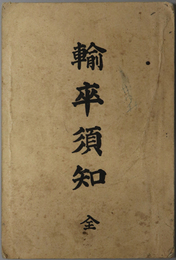 輸卒須知
全